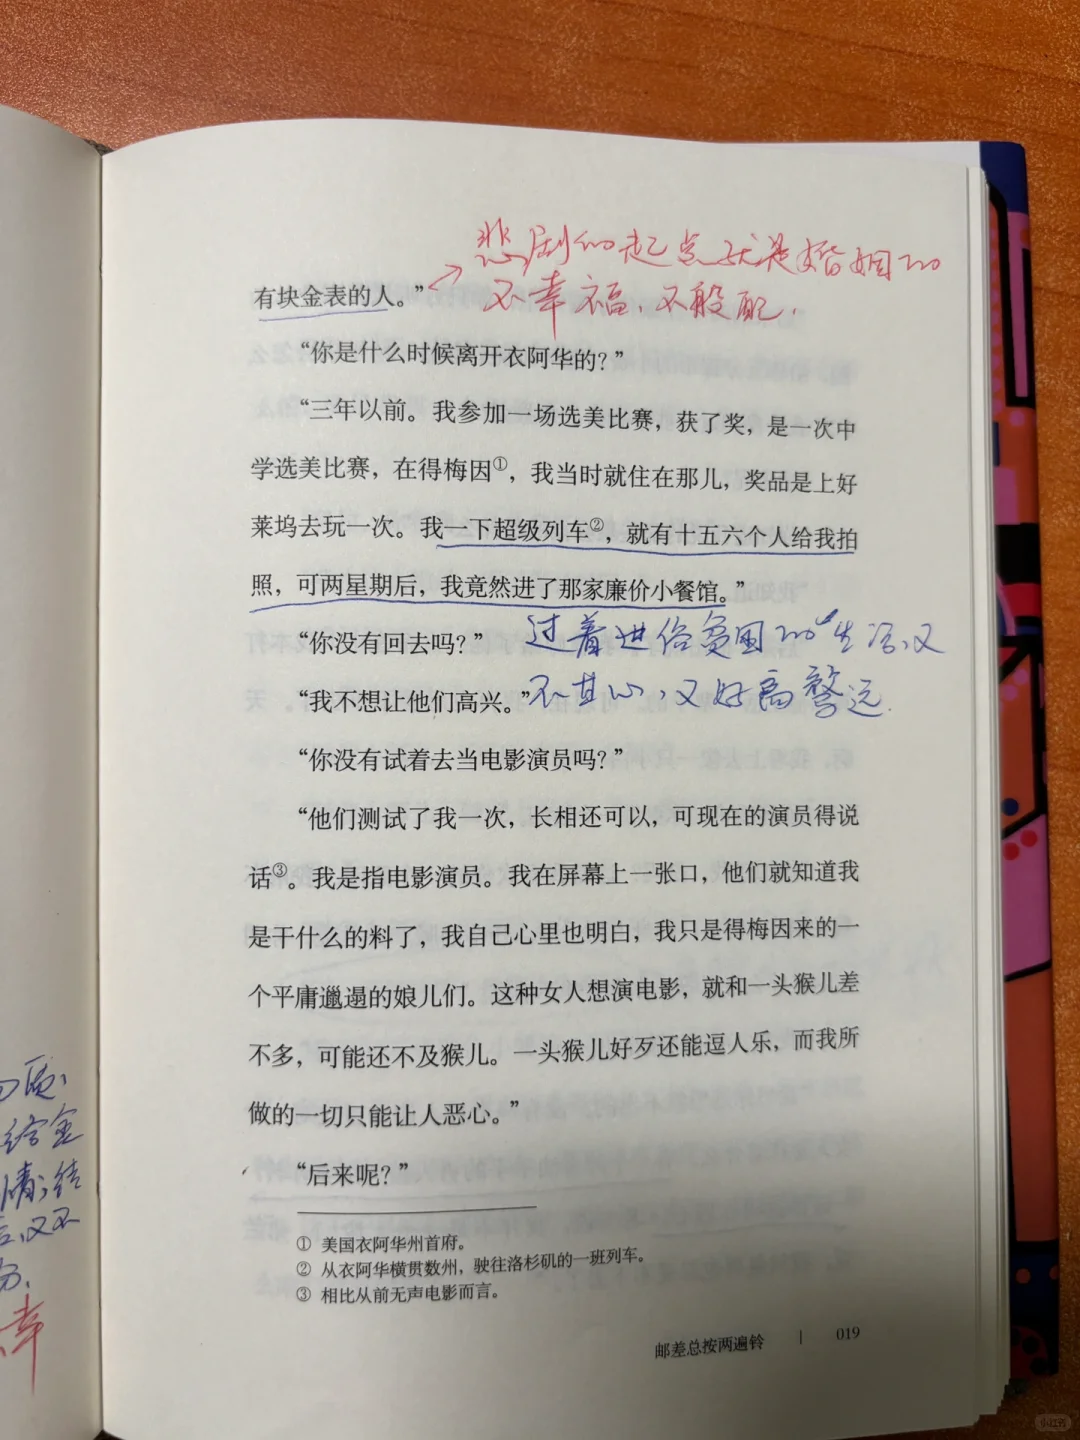 悲剧的起点就是婚姻的
不幸福、不般配.
有块金表的人。”
“你是什么时候离开衣阿华的?”
“三年以前。我参加一场选美比赛，获了奖，是一次中
学选美比赛，在得梅因①，我当时就住在那儿，奖品是上好
莱坞去玩一次。我一下超级列车②，就有十五六个人给我拍
照，可两星期后，我竟然进了那家廉价小餐馆。”
“你没有回去吗?”
过着进俗贫困的生活,又
“我不想让他们高兴。”
不甘心,又好高骛远.
“你没有试着去当电影演员吗?”
“他们测试了我一次，长相还可以，可现在的演员得说
话③。我是指电影演员。我在屏幕上一张口，他们就知道我
是干什么的料了，我自己心里也明白，我只是得梅因来的一
个平庸邋遢的娘儿们。这种女人想演电影，就和一头猴儿差
不多，可能还不及猴儿。一头猴儿好歹还能逗人乐，而我所
做的一切只能让人恶心。”
“后来呢?”
① 美国衣阿华州首府。
② 从衣阿华横贯数州，驶往洛杉矶的一班列车。
③ 相比从前无声电影而言。
邮差总按两遍铃 | 019
给金
情,结
又不
幸
小红书